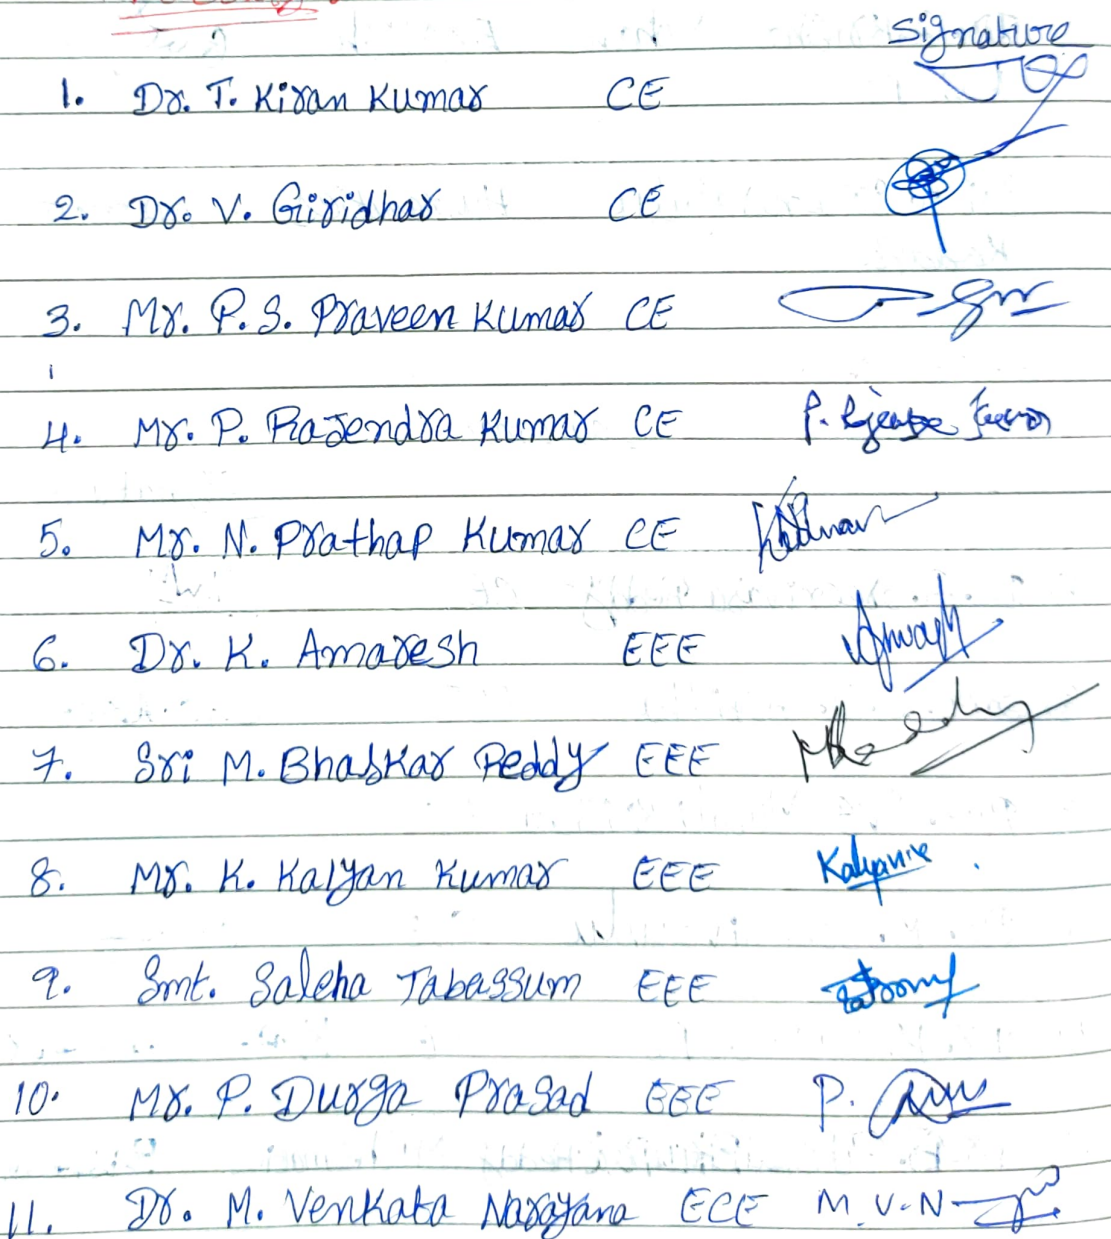 Signature
1. Dr. T. Kiran Kumar CE
2. Dr. V. Giridhar CE
3. Mr. P. S. Praveen Kumar CE
4. Mr. P. Rajendra Kumar CE
5. Mr. N. Prathap Kumar CE
6. Dr. K. Amaresh EEE
7. Sri M. Bhaskar Reddy EEE
8. Mr. K. Kalyan Kumar EEE
9. Smt. Saleha Tabassum EEE
10. Mr. P. Durga Prasad EEE P.
11. Dr. M. Venkata Narayana ECE M.V.N